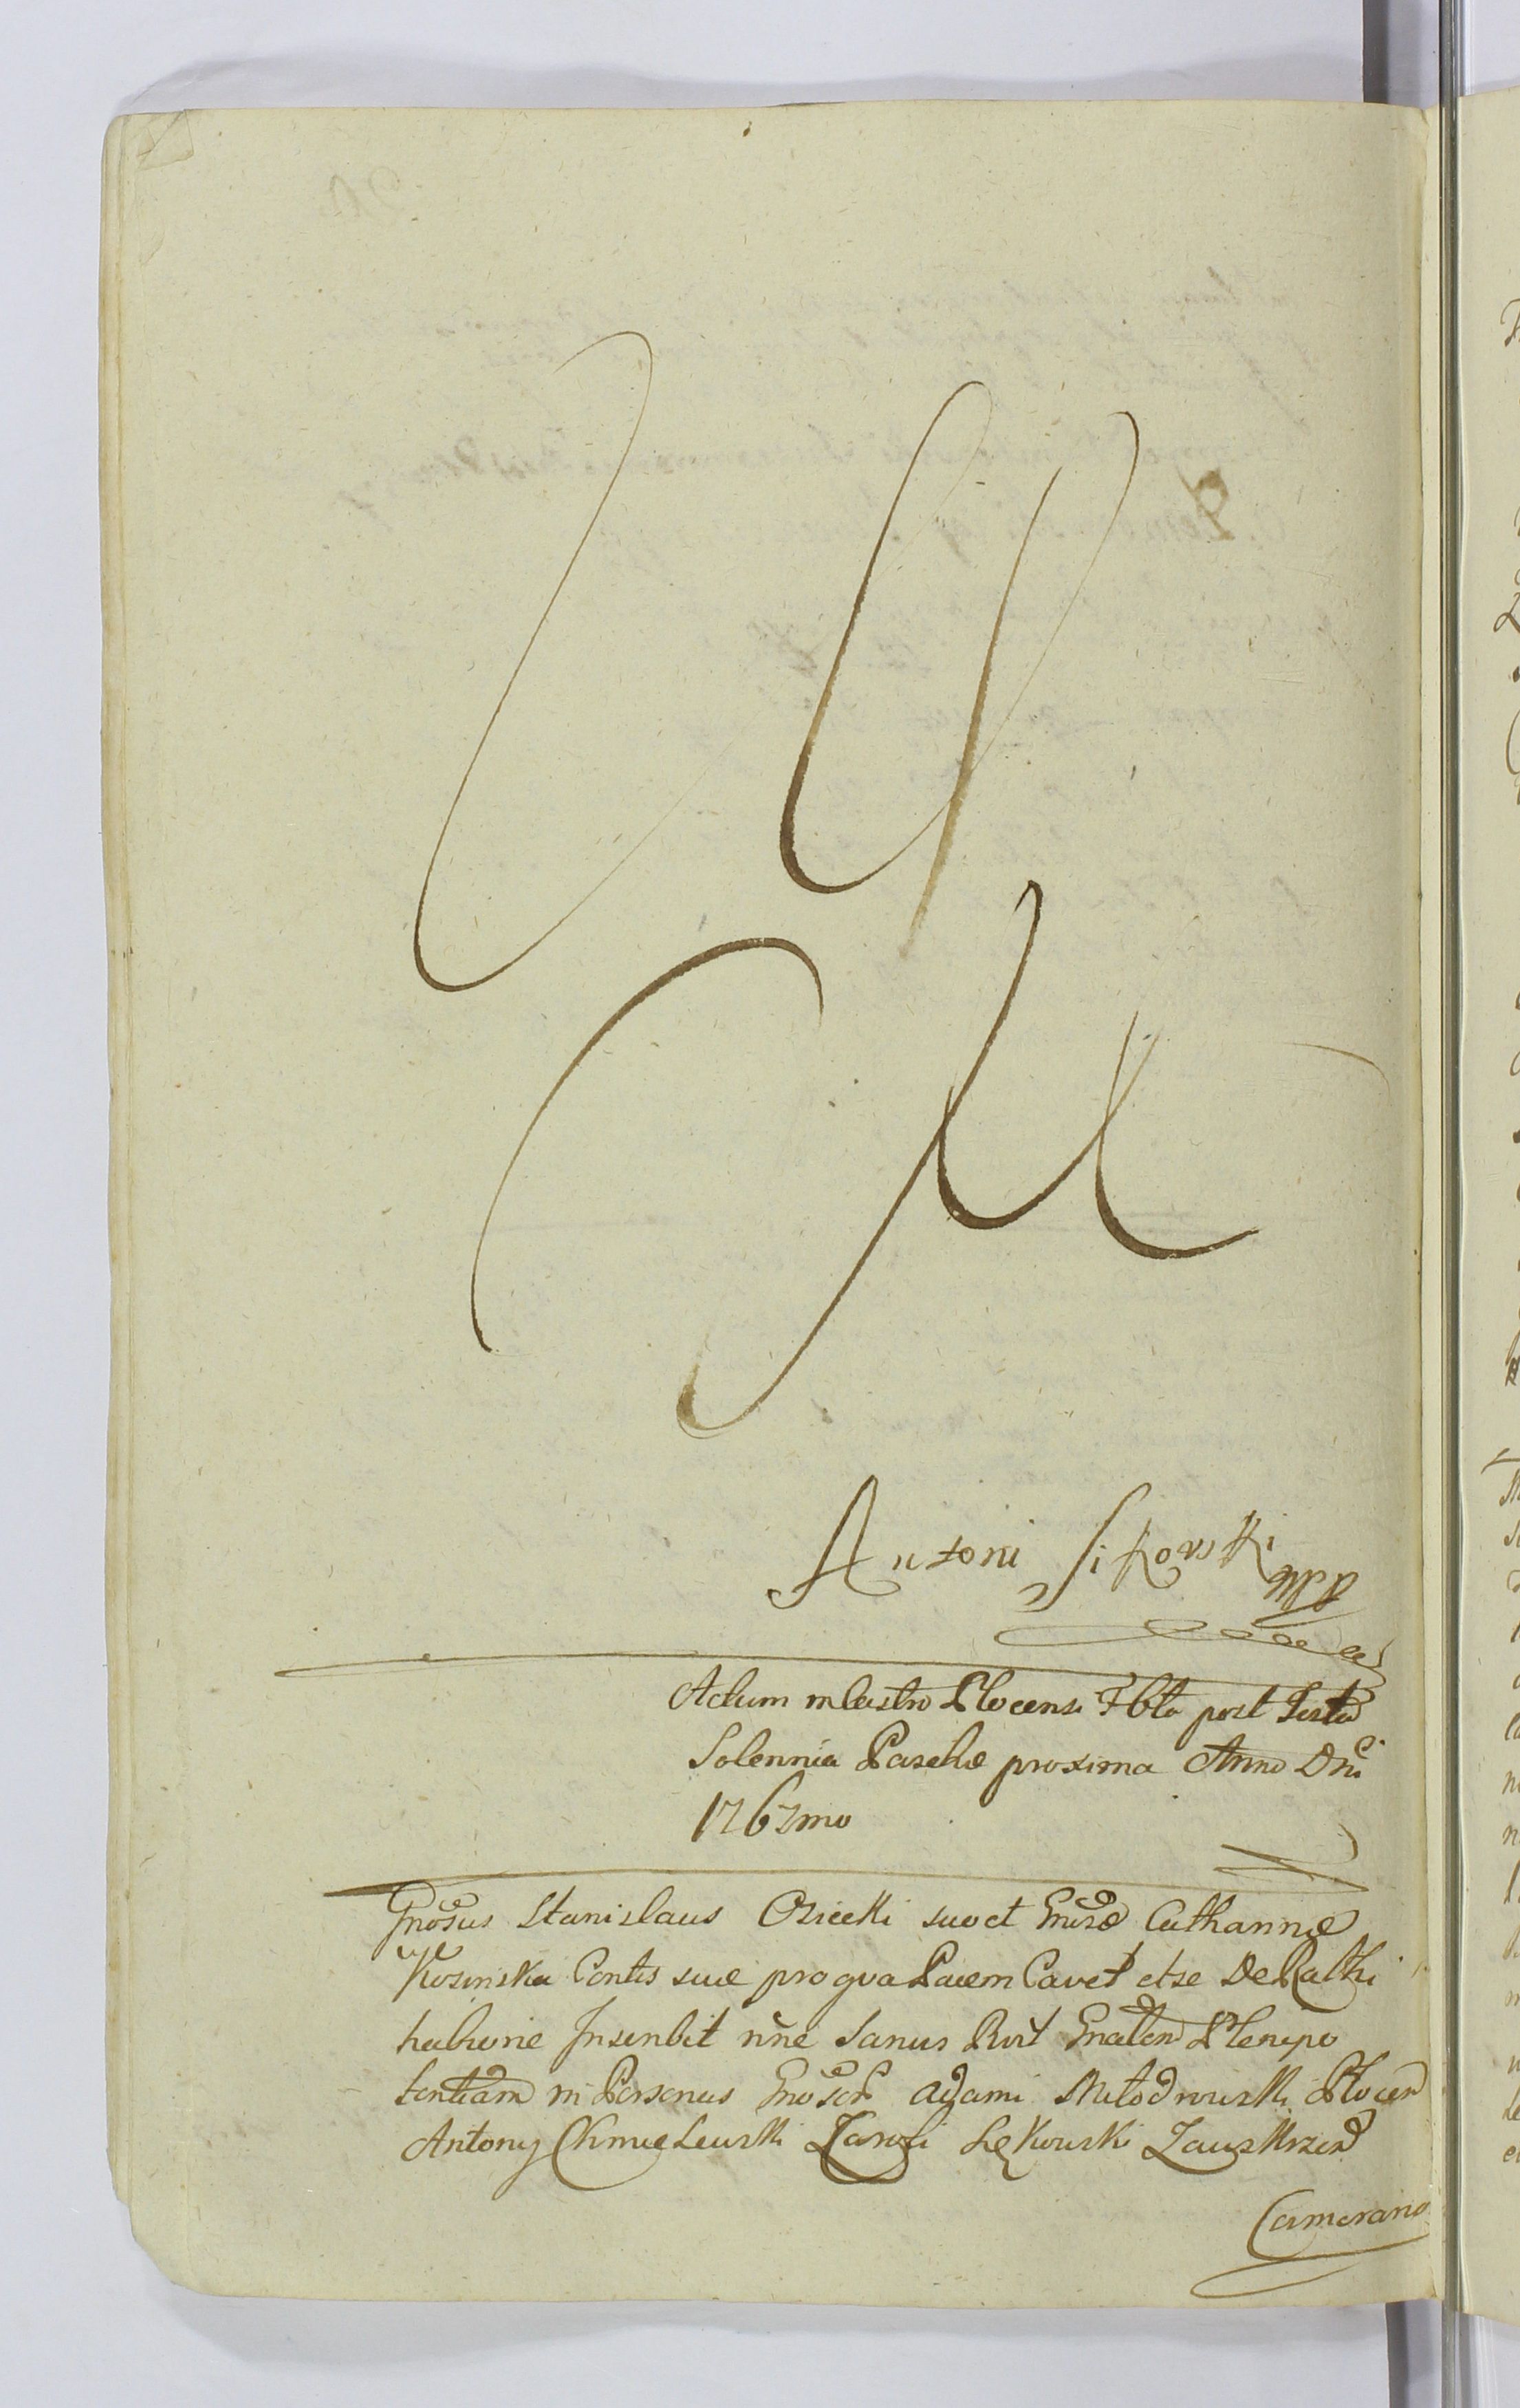 Antoni Sikorski mp
Actum in Castro Plocensi Fbta post Festa
Solennia Paschæ proxima Anno Dni
1767mo
Gnosus Stanislaus Osiecki suo et Gnosæ Catharinæ
Kosinska Contis suæ pro qua Pacem Cavet et se De Rathi
habitione Inscribit nne Sanus Rvit Gnalem Plenipo
tentiam in Personas Gnosor Adami Młodzowski Plocen
Antony Chmielewski Zarosi Lękowski Zauskrzen
Camerano